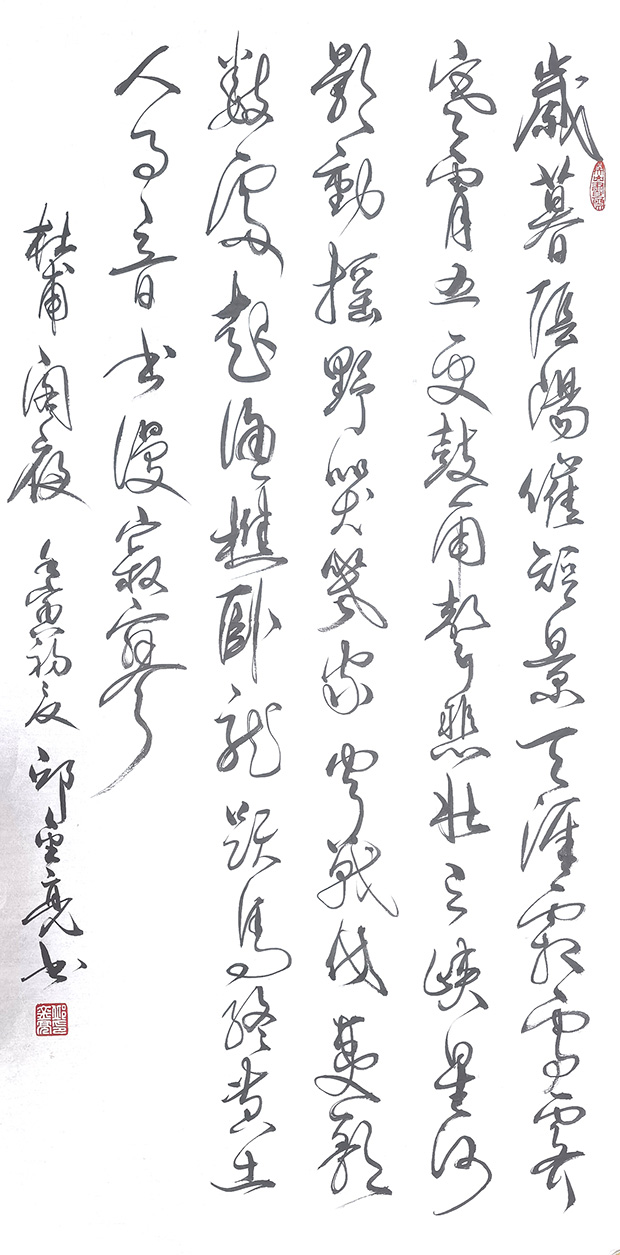 歲暮陰陽催短景天涯霜雪霽
寒宵五更鼓角聲悲壯三峽星河
影動搖野哭幾家聞戰伐歌
數處起漁樵臥龍躍馬終黃土
人事音書漫寂寥
杜甫閣夜 壬寅初夏 邱金亮書